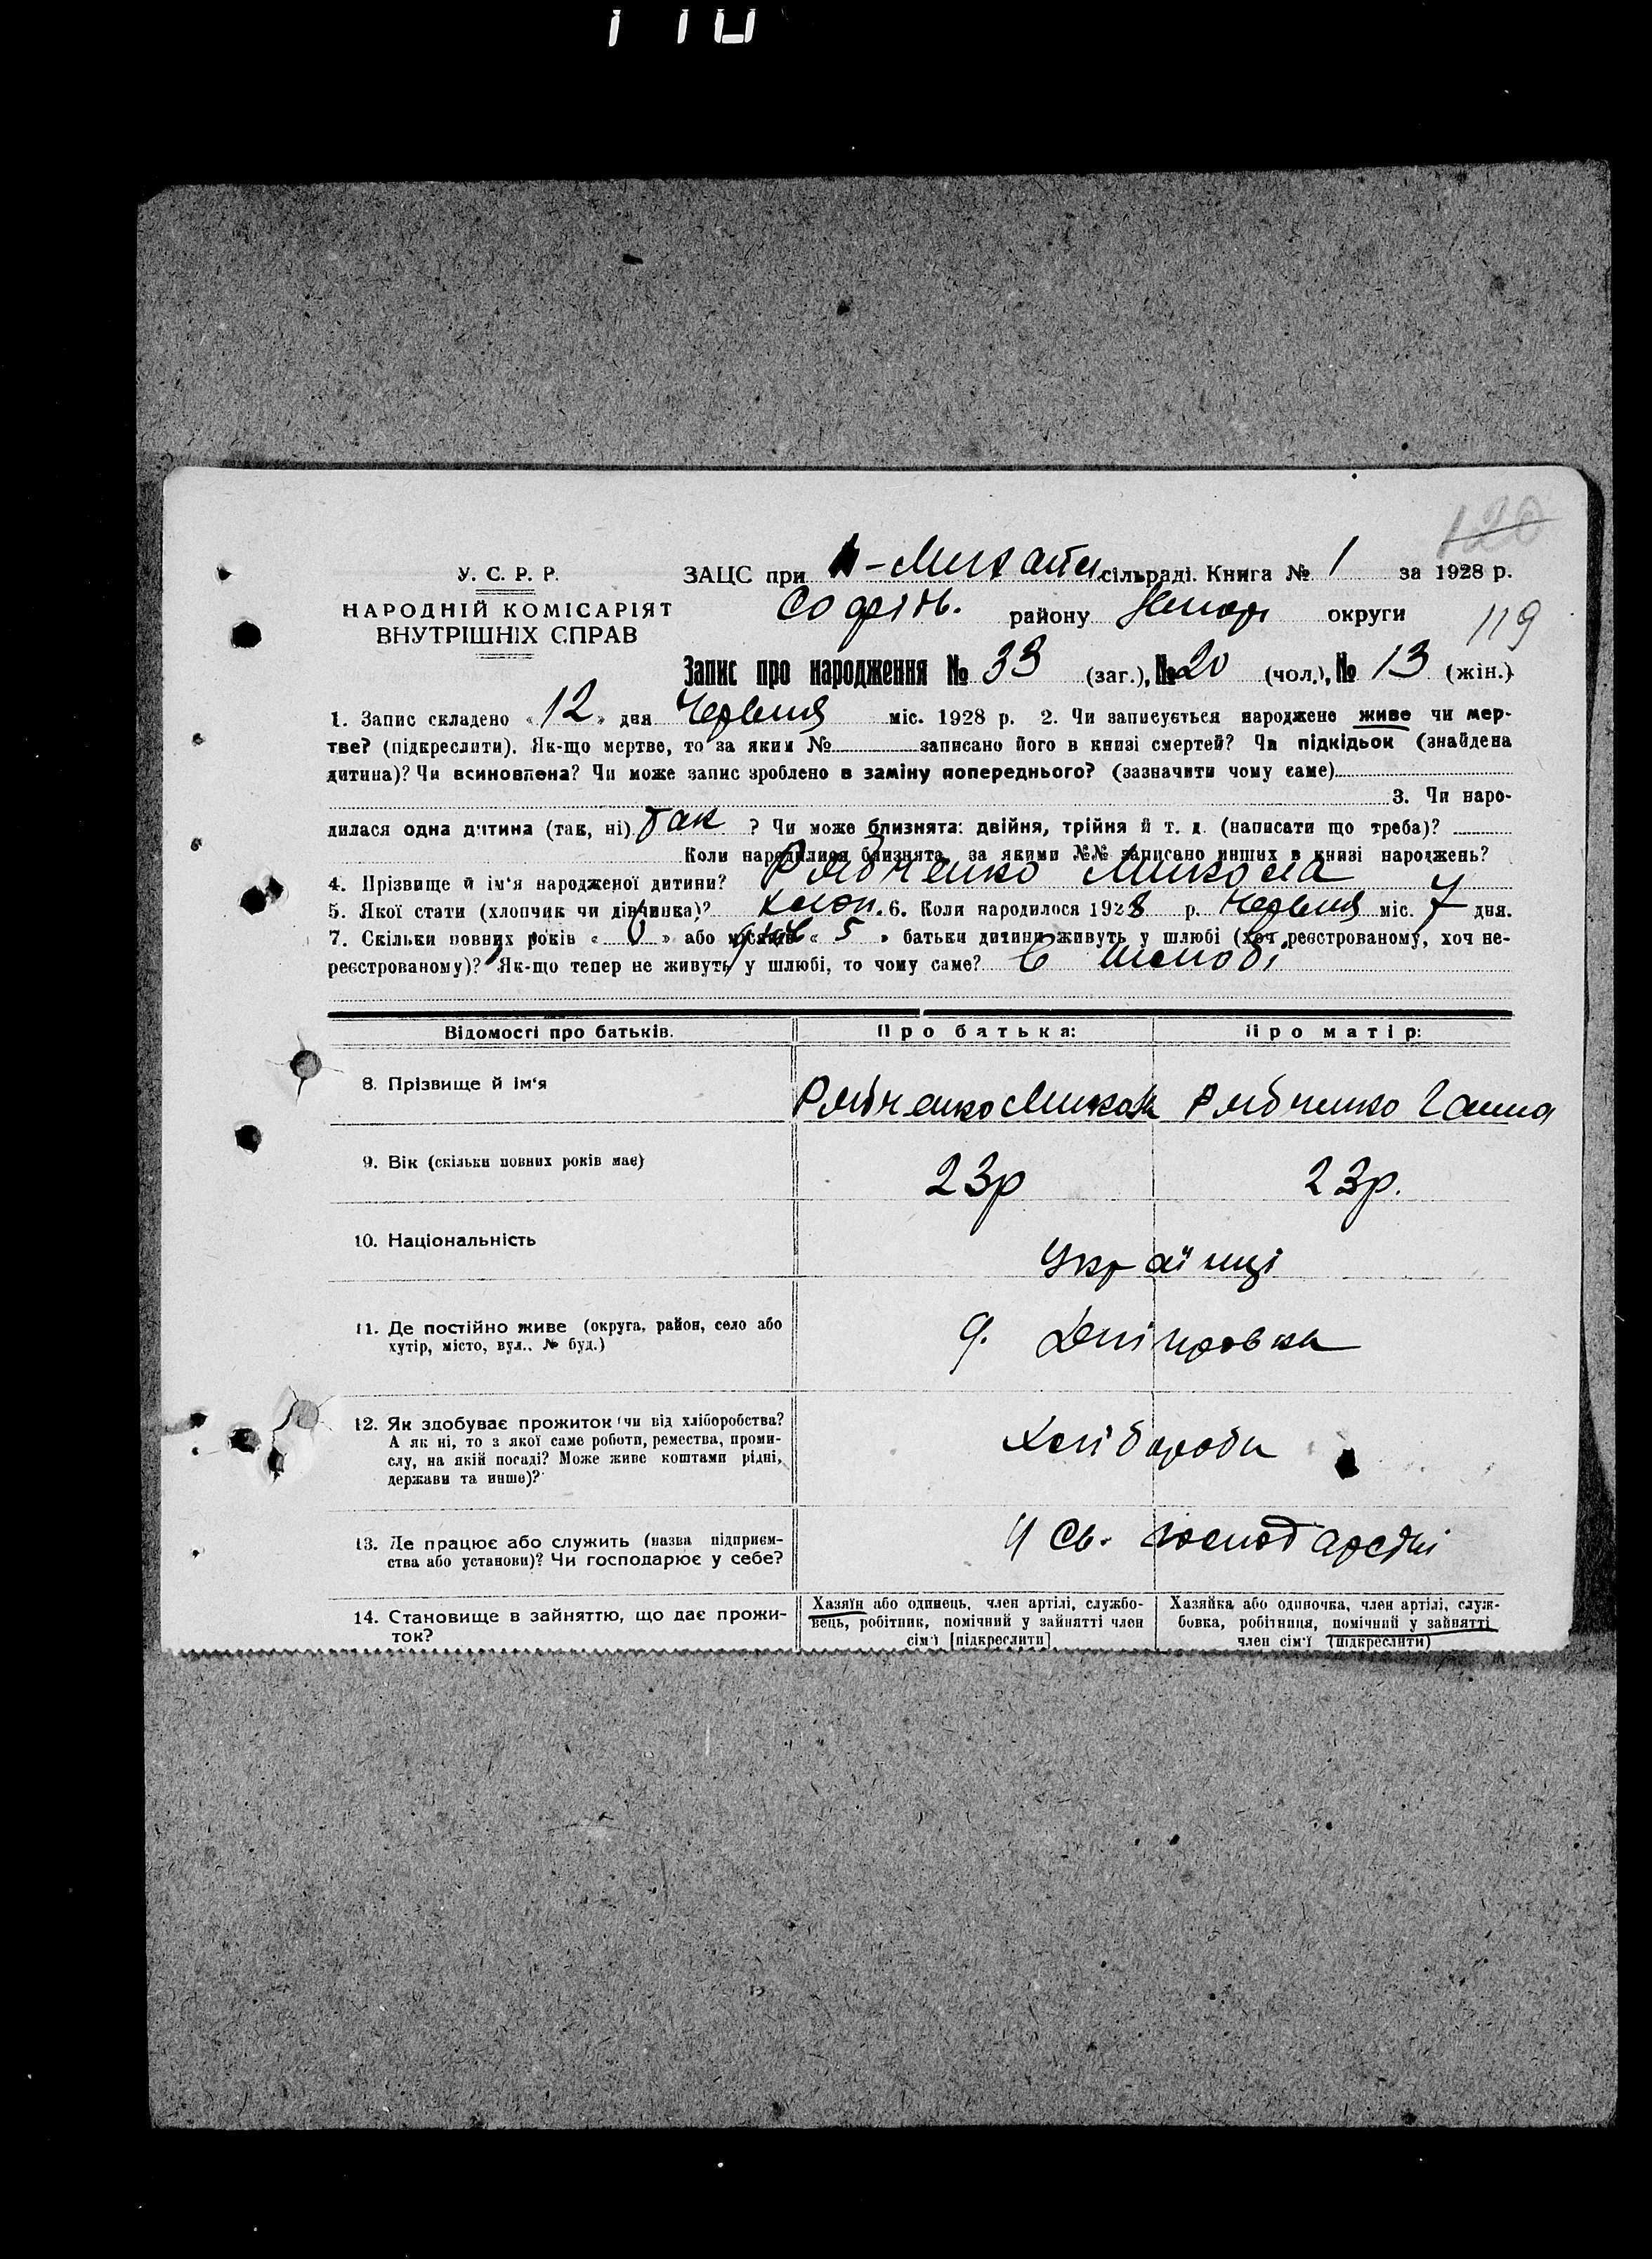 120
У. С. Р. Р.
НАРОДНІЙ КОМІСАРІЯТ
ВНУТРІШНІХ СПРАВ
ЗАЦС при сільраді. Книга № 1 за 1928 р.
району округи
119
Запис про народження № 33 (заг.), № 20 (чол.), № 13 (жін.)
1. Запис складено «12» дня Червня міс. 1928 р. 2. Чи записується народжене живе чи мер-
тве? (підкреслити). Як-що мертве, то за яким № записано його в книзі смертей? Чи підкідьок (знайдена
дитина)? Чи всиновлена? Чи може запис зроблено в заміну попереднього? (зазначити чому саме)
3. Чи наро-
дилася одна дитина (так, ні) Так ? Чи може близнята: двійня, трійня й т. д. (написати що треба)?
Коли народилися близнята, за якими №№ записано инших в книзі народжень?
4. Прізвище й ім'я народженої дитини? Рябченко Микола
5. Якої стати (хлопчик чи дівчинка)? хлоп. 6. Коли народилося 1928 р. Червня міс. 7 дня.
7. Скільки повних років « 0 » або місяців « 5 » батьки дитини живуть у шлюбі (хоч реєстрованому, хоч не-
реєстрованому)? Як-що тепер не живуть у шлюбі, то чому саме? В шлюбі
Відомості про батьків. Про батька: Про матір:
8. Прізвище й ім'я Рябченко Микола Рябченко Ганна
9. Вік (скільки повних років має) 23р 23р.
10. Національність Українці
11. Де постійно живе (округа, район, село або
хутір, місто, вул.. № буд.) Дніпровка
12. Як здобуває прожиток чи від хліборобства?
А як ні, то з якої саме роботи, ремества, проми-
слу, на якій посаді? Може живе коштами рідні,
держави та инше)? Хлібороби
13. Де працює або служить (назва підприєм-
ства або установи)? Чи господарює у себе? У Св. господарстві
14. Становище в зайняттю, що дає прожи-
ток?
Хазяїн або одинець, член артілі, службо-
вець, робітник, помічний у зайнятті член
сім'ї [підкреслити]
Хазяйка або одиночка, член артілі, служ-
бовка, робітниця, помічний у зайнятті
член сім'ї (підкреслити)